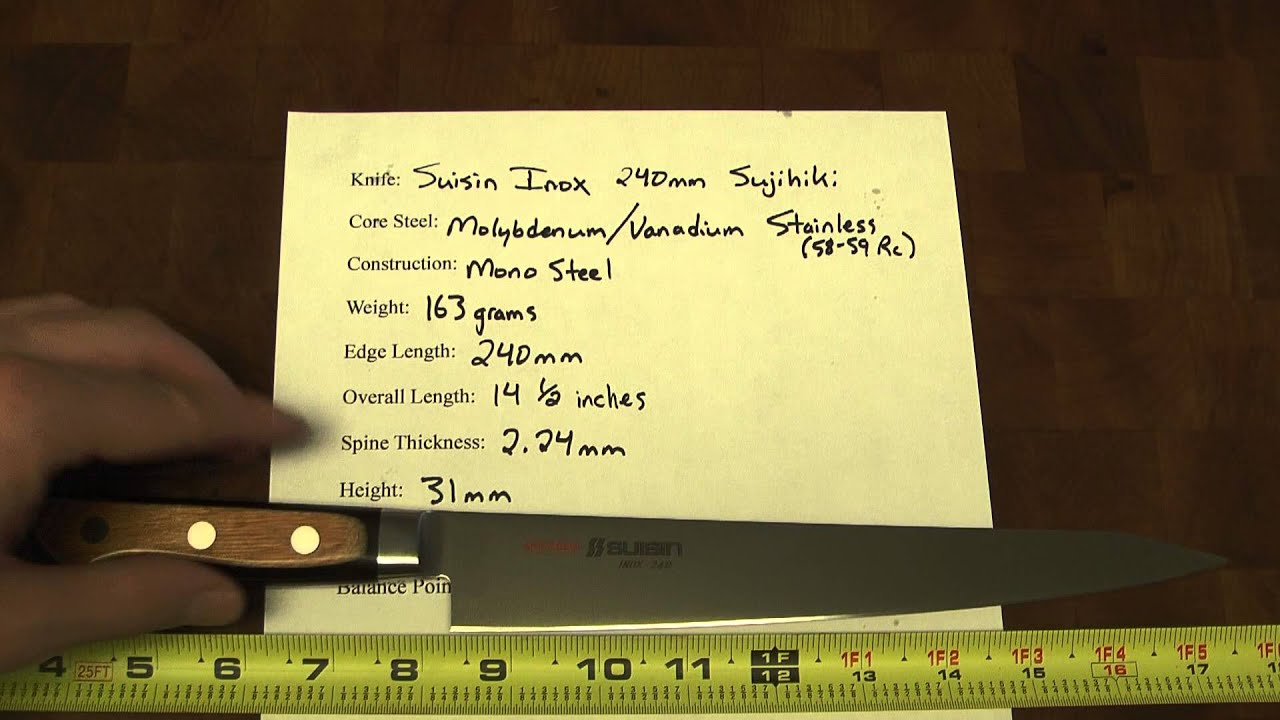 Knife: Suisin Inox 240mm Sujihiki
Core Steel: Molybdenum/Vanadium Stainless
(58-59 Rc)
Construction: Mono Steel
Weight: 163 grams
Edge Length: 240mm
Overall Length: 14 1/2 inches
Spine Thickness: 2.24mm
Height: 31mm
SUISIN
INOX-240
Balance Poin
4 25FT 5 6 7 8 9 10 11 1F 1F1 1F2 1F3 1F4 1F5
12 13 14 15 16 17